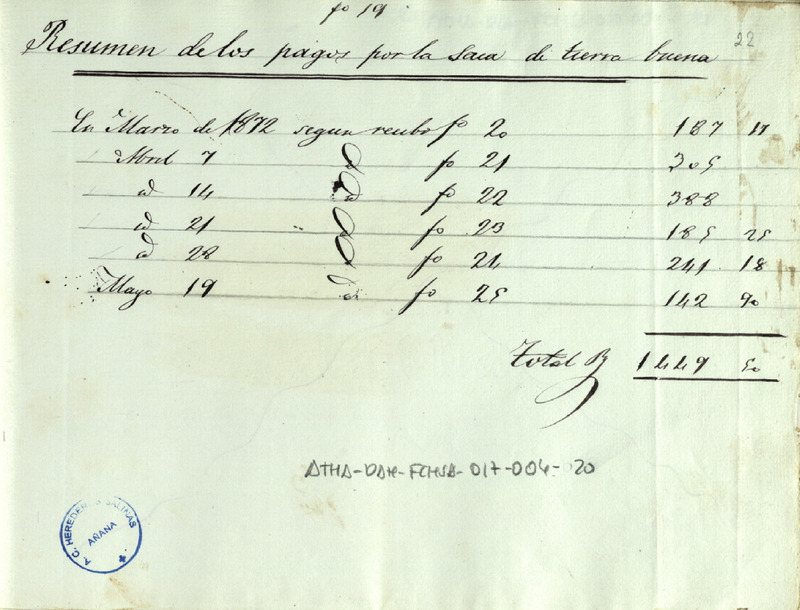 fo 19
22
Resumen de los pagos por la saca de tierra buena
En Marzo de 1872 segun recibo fo 20 187 17
Abril 7 fo 21 305
id 14 id fo 22 388
id 21 fo 23 185 25
id 28 fo 24 241 18
Mayo 19 id fo 25 142 90
Total R 1449 50
ATHA-DAH-FCHSA-017-004-020
A. C. HEREDEROS SALINAS
AÑANA